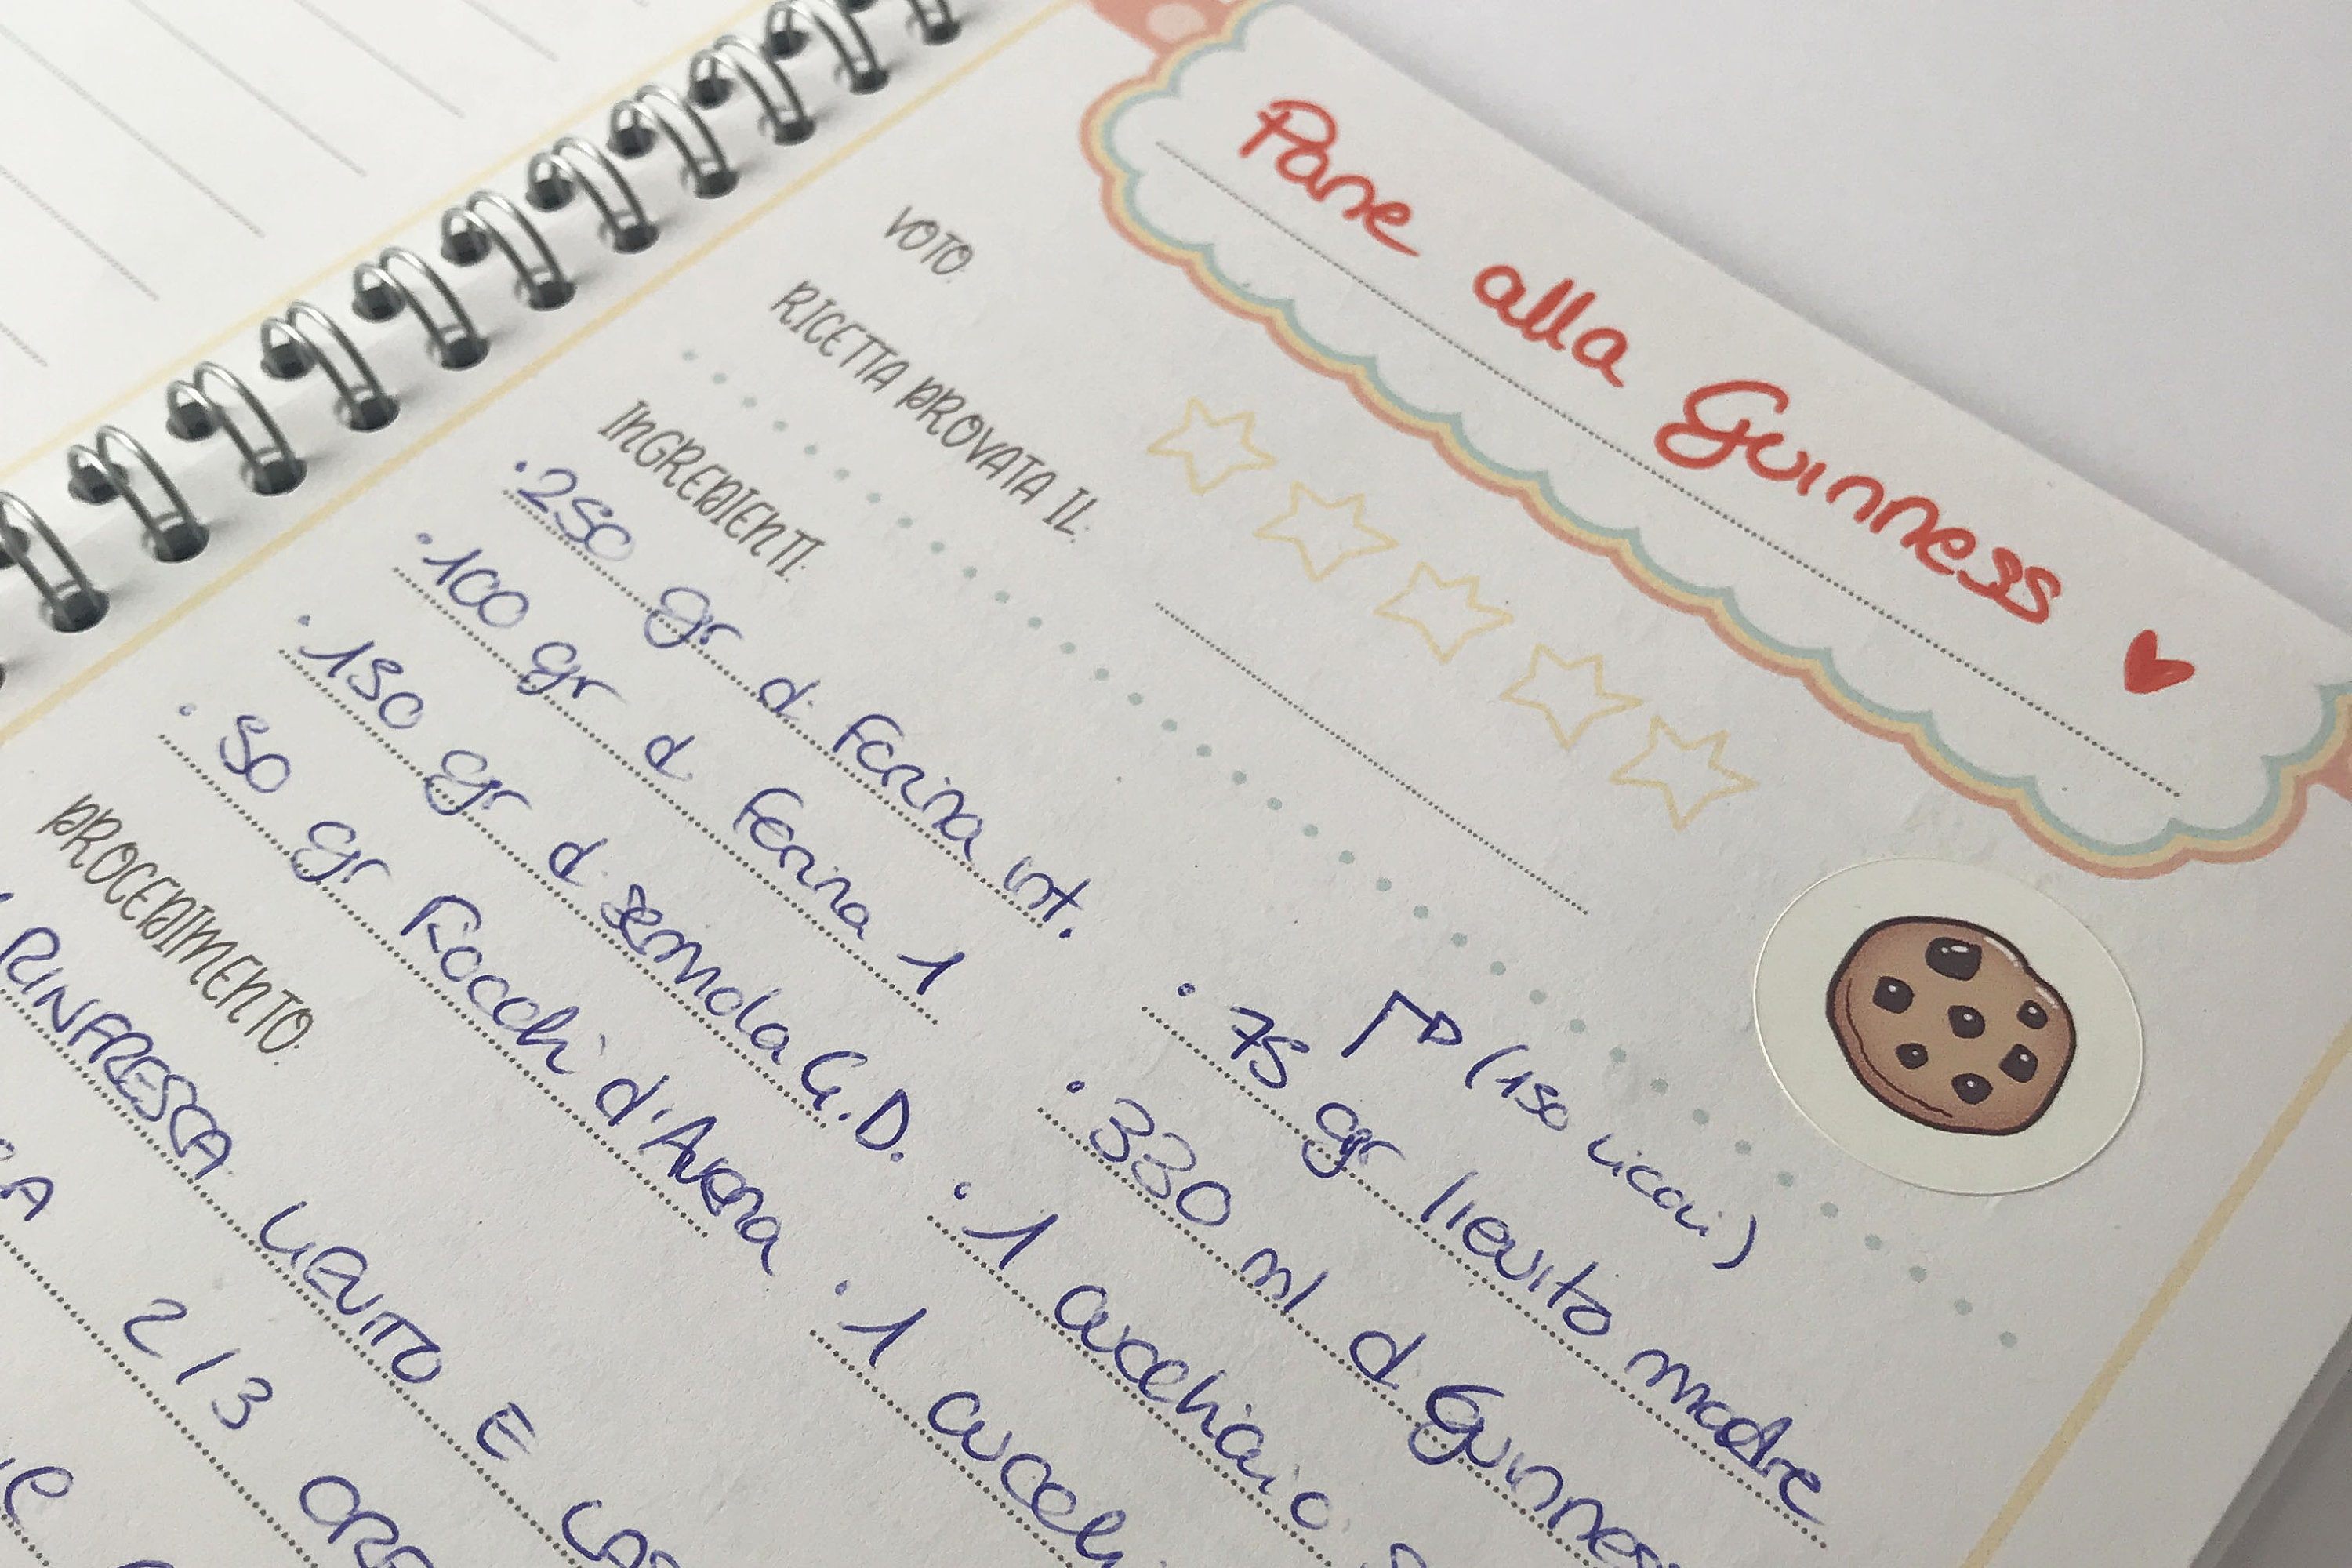 Pane alla Guinness
VOTO:
RICETTA PROVATA IL:
INGREDIENTI:
• 250 gr di farina int.
• 100 gr di farina 1
• 150 gr di semola G.D.
• 50 gr fiocchi d'Avena
(150 licoli)
• 75 gr lievito madre
• 330 ml di Guinness
• 1 cucchiaio
• 1
PROCEDIMENTO:
RINFRESCA LIEVITO E
2/3